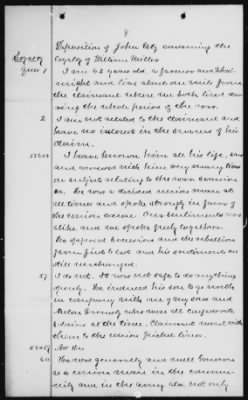 8
Deposition of John Utz concerning the
Loyalty of William Miller
Loyalty
Ques 1
I am 52 years old, a farmer and Mill
wright and live about one mile from
the claimant where we both lived du
ring the whole period of the war.
2
I am not related to the claimant and
have no interest in the success of his
claim.
I have known him all his life, saw
and conversed with him very many times
on subject relating to the war, secession
&c. He was a decided union man at
all times and spoke strongly in favor of
the union cause. Our sentiments were
alike and we spoke freely together.
He opposed secession and the rebellion
from first to last and his sentiments are
still unchanged.
57
I do not. It was not safe to do anything
openly. He induced his son to go north
in company with one of my sons and
who were all confederate
soldiers at the time. Claimant went with
them to the union picket lines.
No Sir
60
He was generally and well known
as a union man in the commu-
nity and in the army also, not only